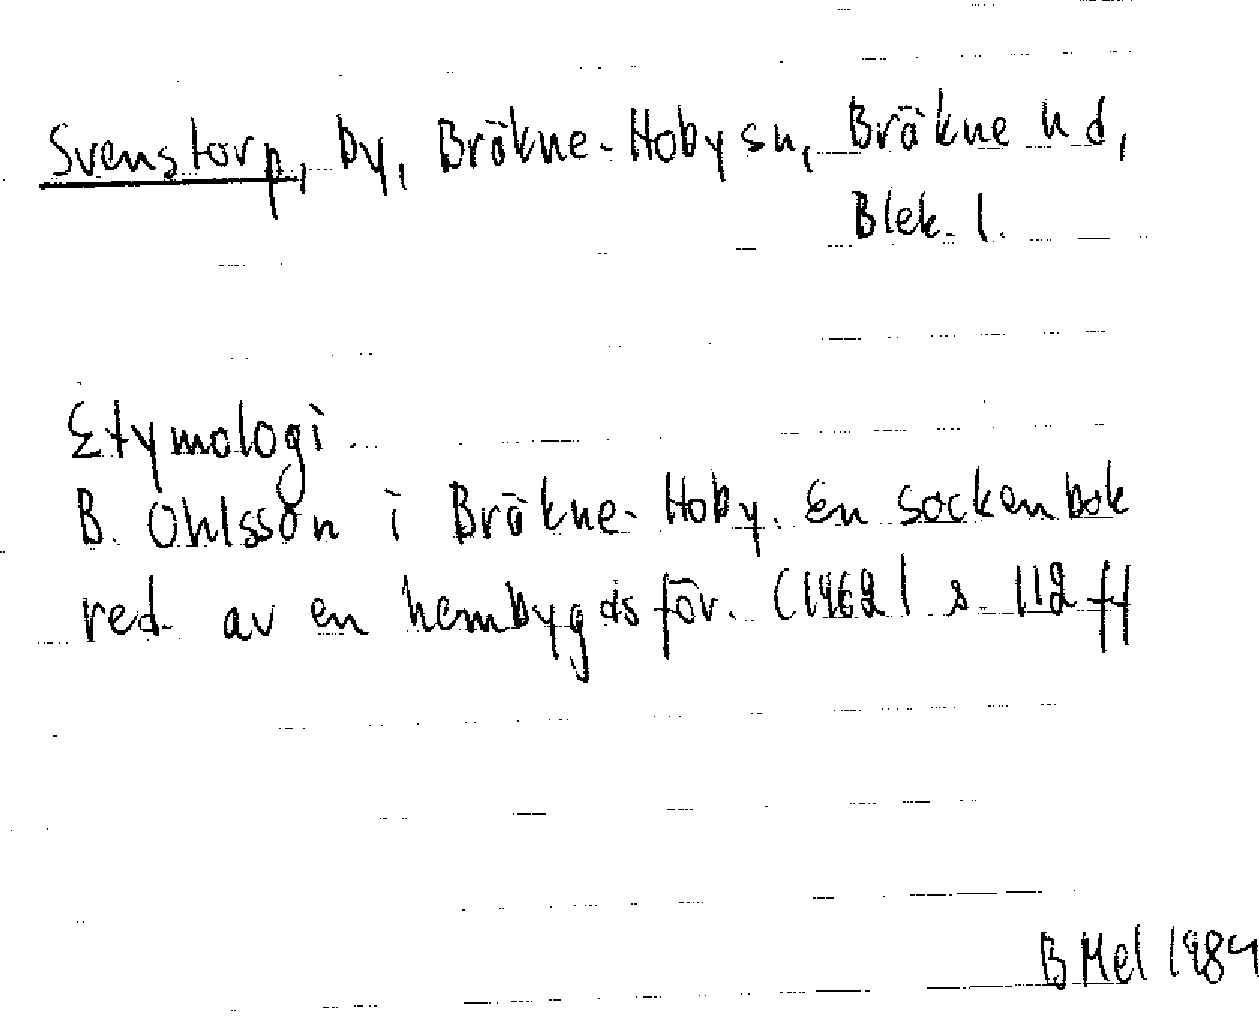 Svenstorp, by, Bräkne-Hoby sn, Bräkne hd,
Blek. l.
Etymologi
B. Ohlsson i Bräkne-Hoby. En sockenbok
red. av en hembygdsför. (1962) s. 112 ff
B Mel 1984